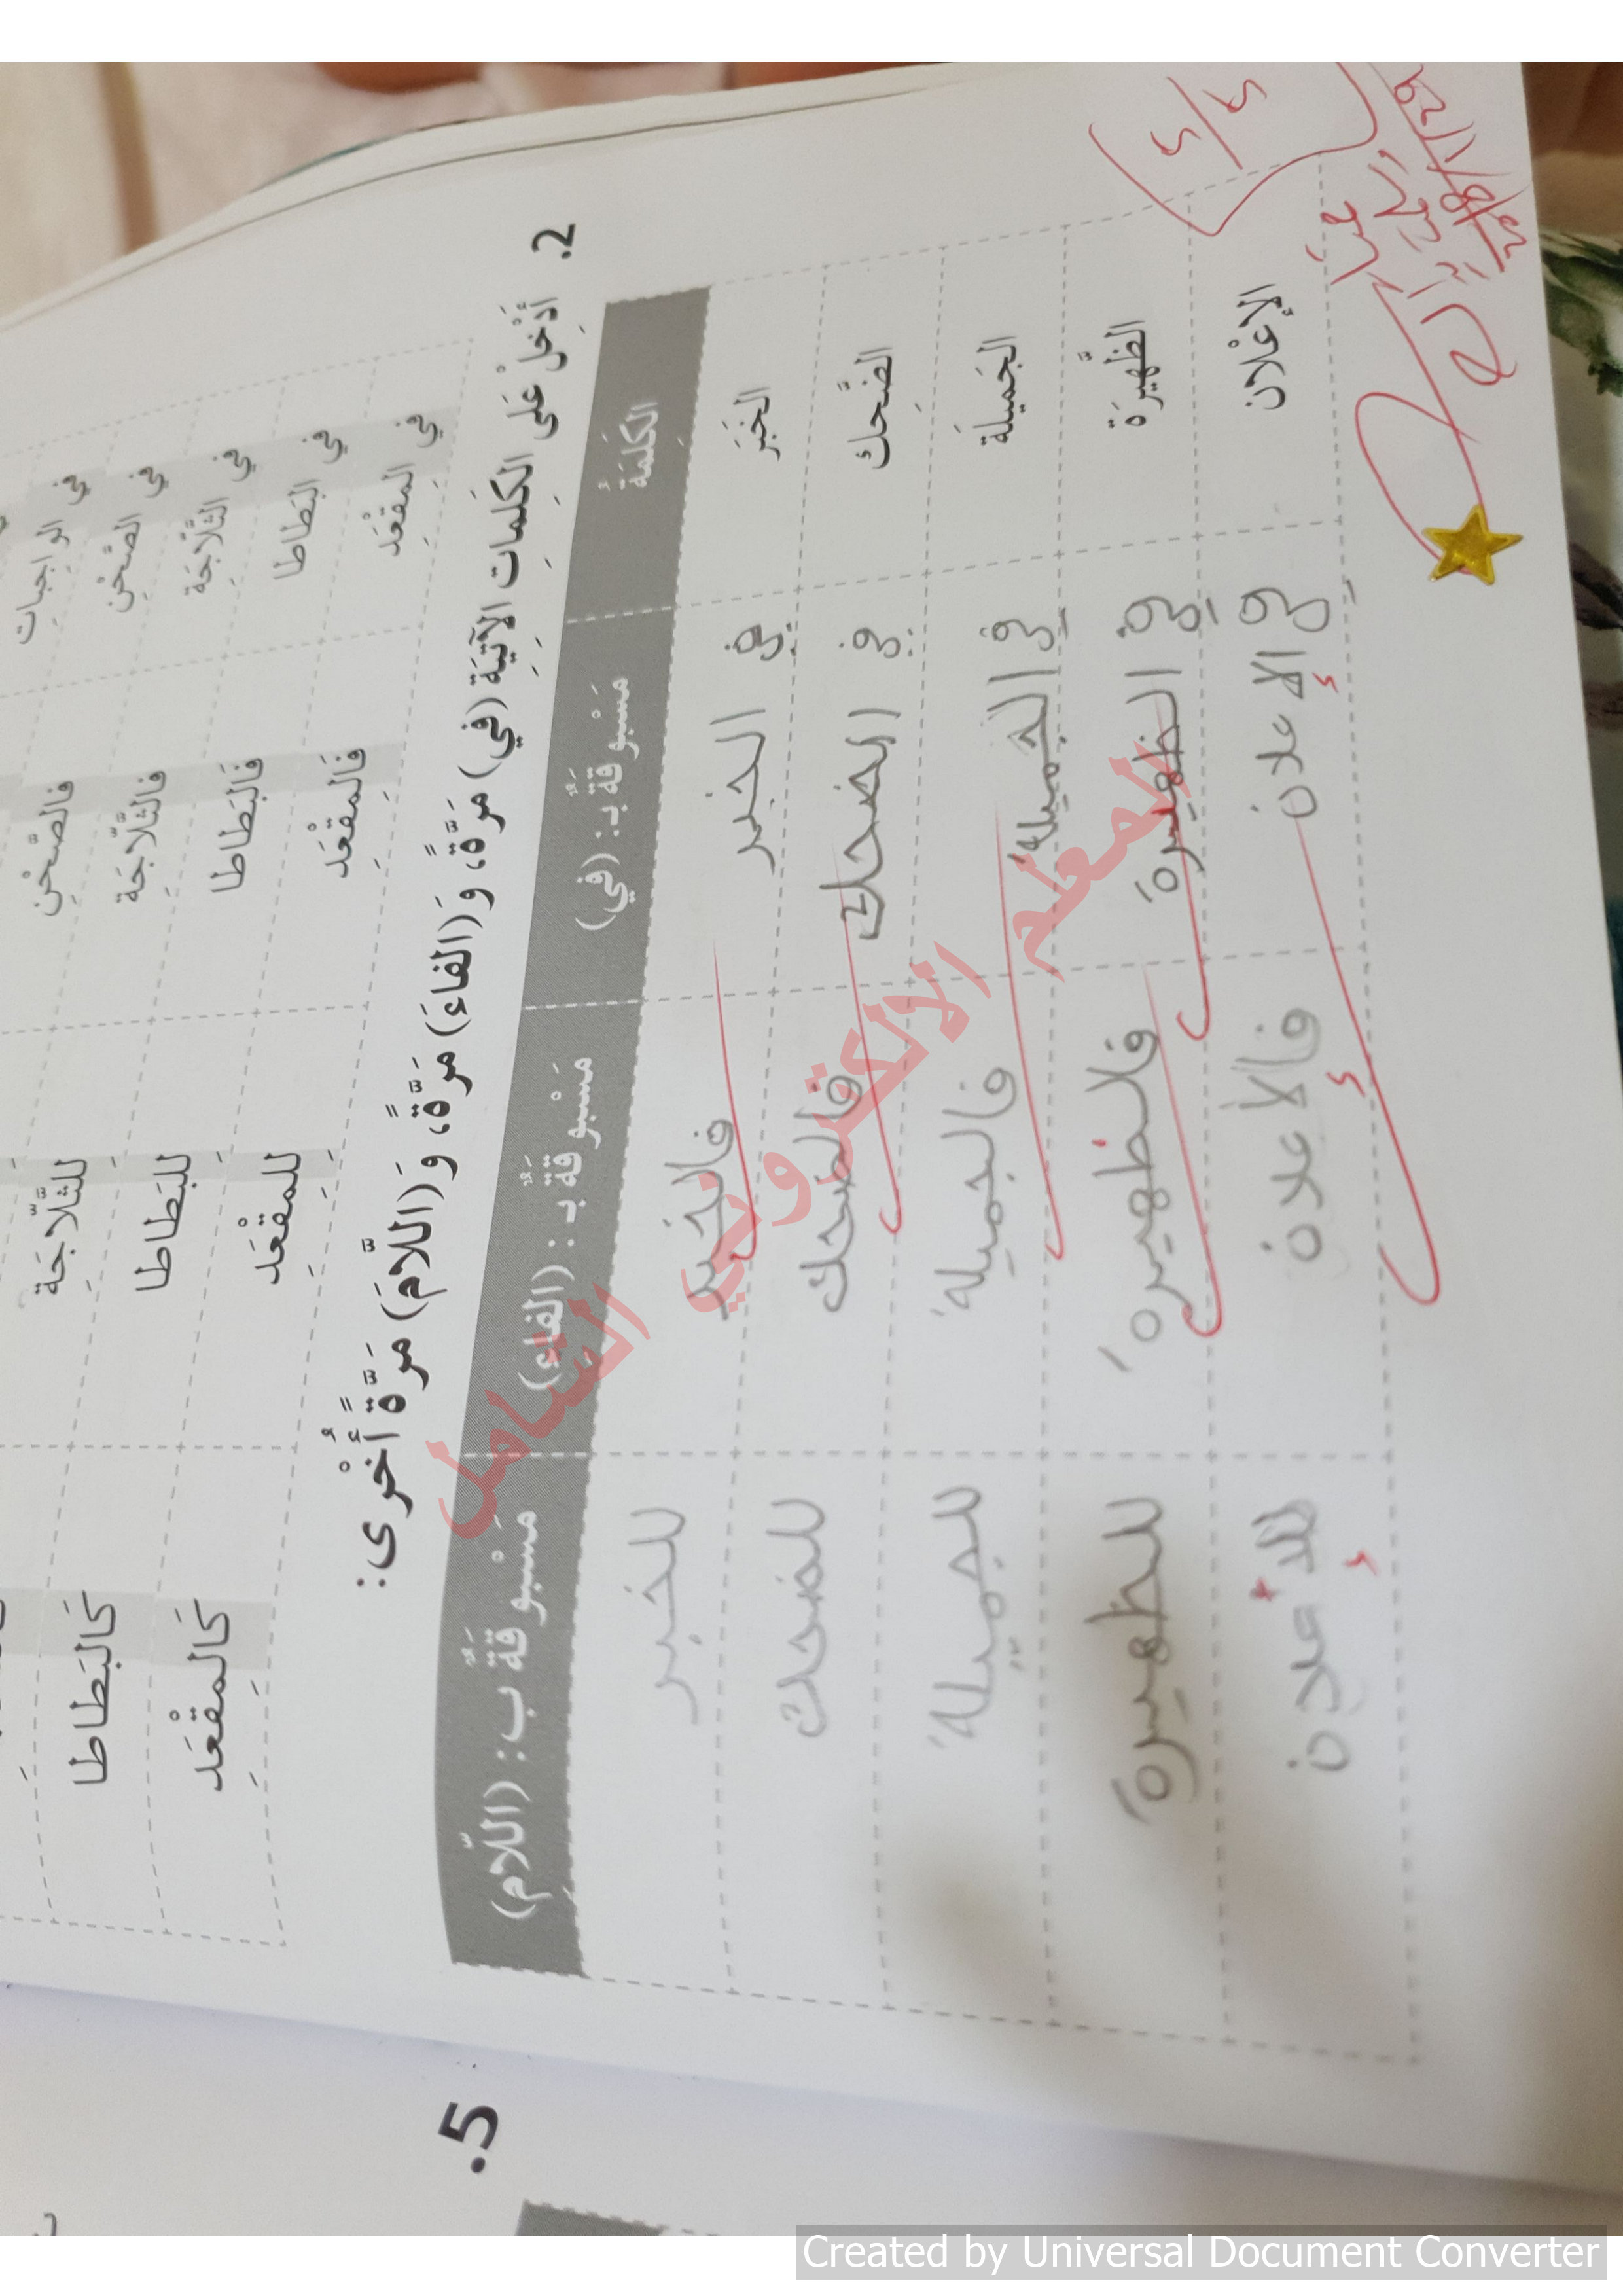 في الواجبات
في الصَّحْنِ فالصَّحْنِ
في الثَّلّاجَةِ فالثَّلّاجَةِ للثَّلّاجَةِ
في البَطاطا فَالبَطاطا للبَطاطا كَالبَطاطا
في المَقْعَدِ فَالمَقْعَدِ للمَقْعَدِ كَالمَقْعَدِ
2. أُدْخِلُ عَلى الكَلِماتِ الآتِيَةِ (في) مَرَّةً، وَ(الفاءَ) مَرَّةً، وَ(اللّامَ) مَرَّةً أُخْرى:
الكَلِمَةُ مَسْبوقَةٌ بـ: (في) مَسْبوقَةٌ بـ: (الفاءِ) مَسْبوقَةٌ ب: (اللّامِ)
الخَبَر في الخبر فالخبر للخبر
الضَّحِك في الضحك فالضحك للضحك
الجَميلَة في الجميلة فالجميلة للجميلة
الظَّهيرَة في الظهيرة فالظهيرة للظهيرة
الإعْلان في الإعلان فالإعلان للإعلان
٤/٤
5.
المعلم الالكتروني الشامل
Created by Universal Document Converter